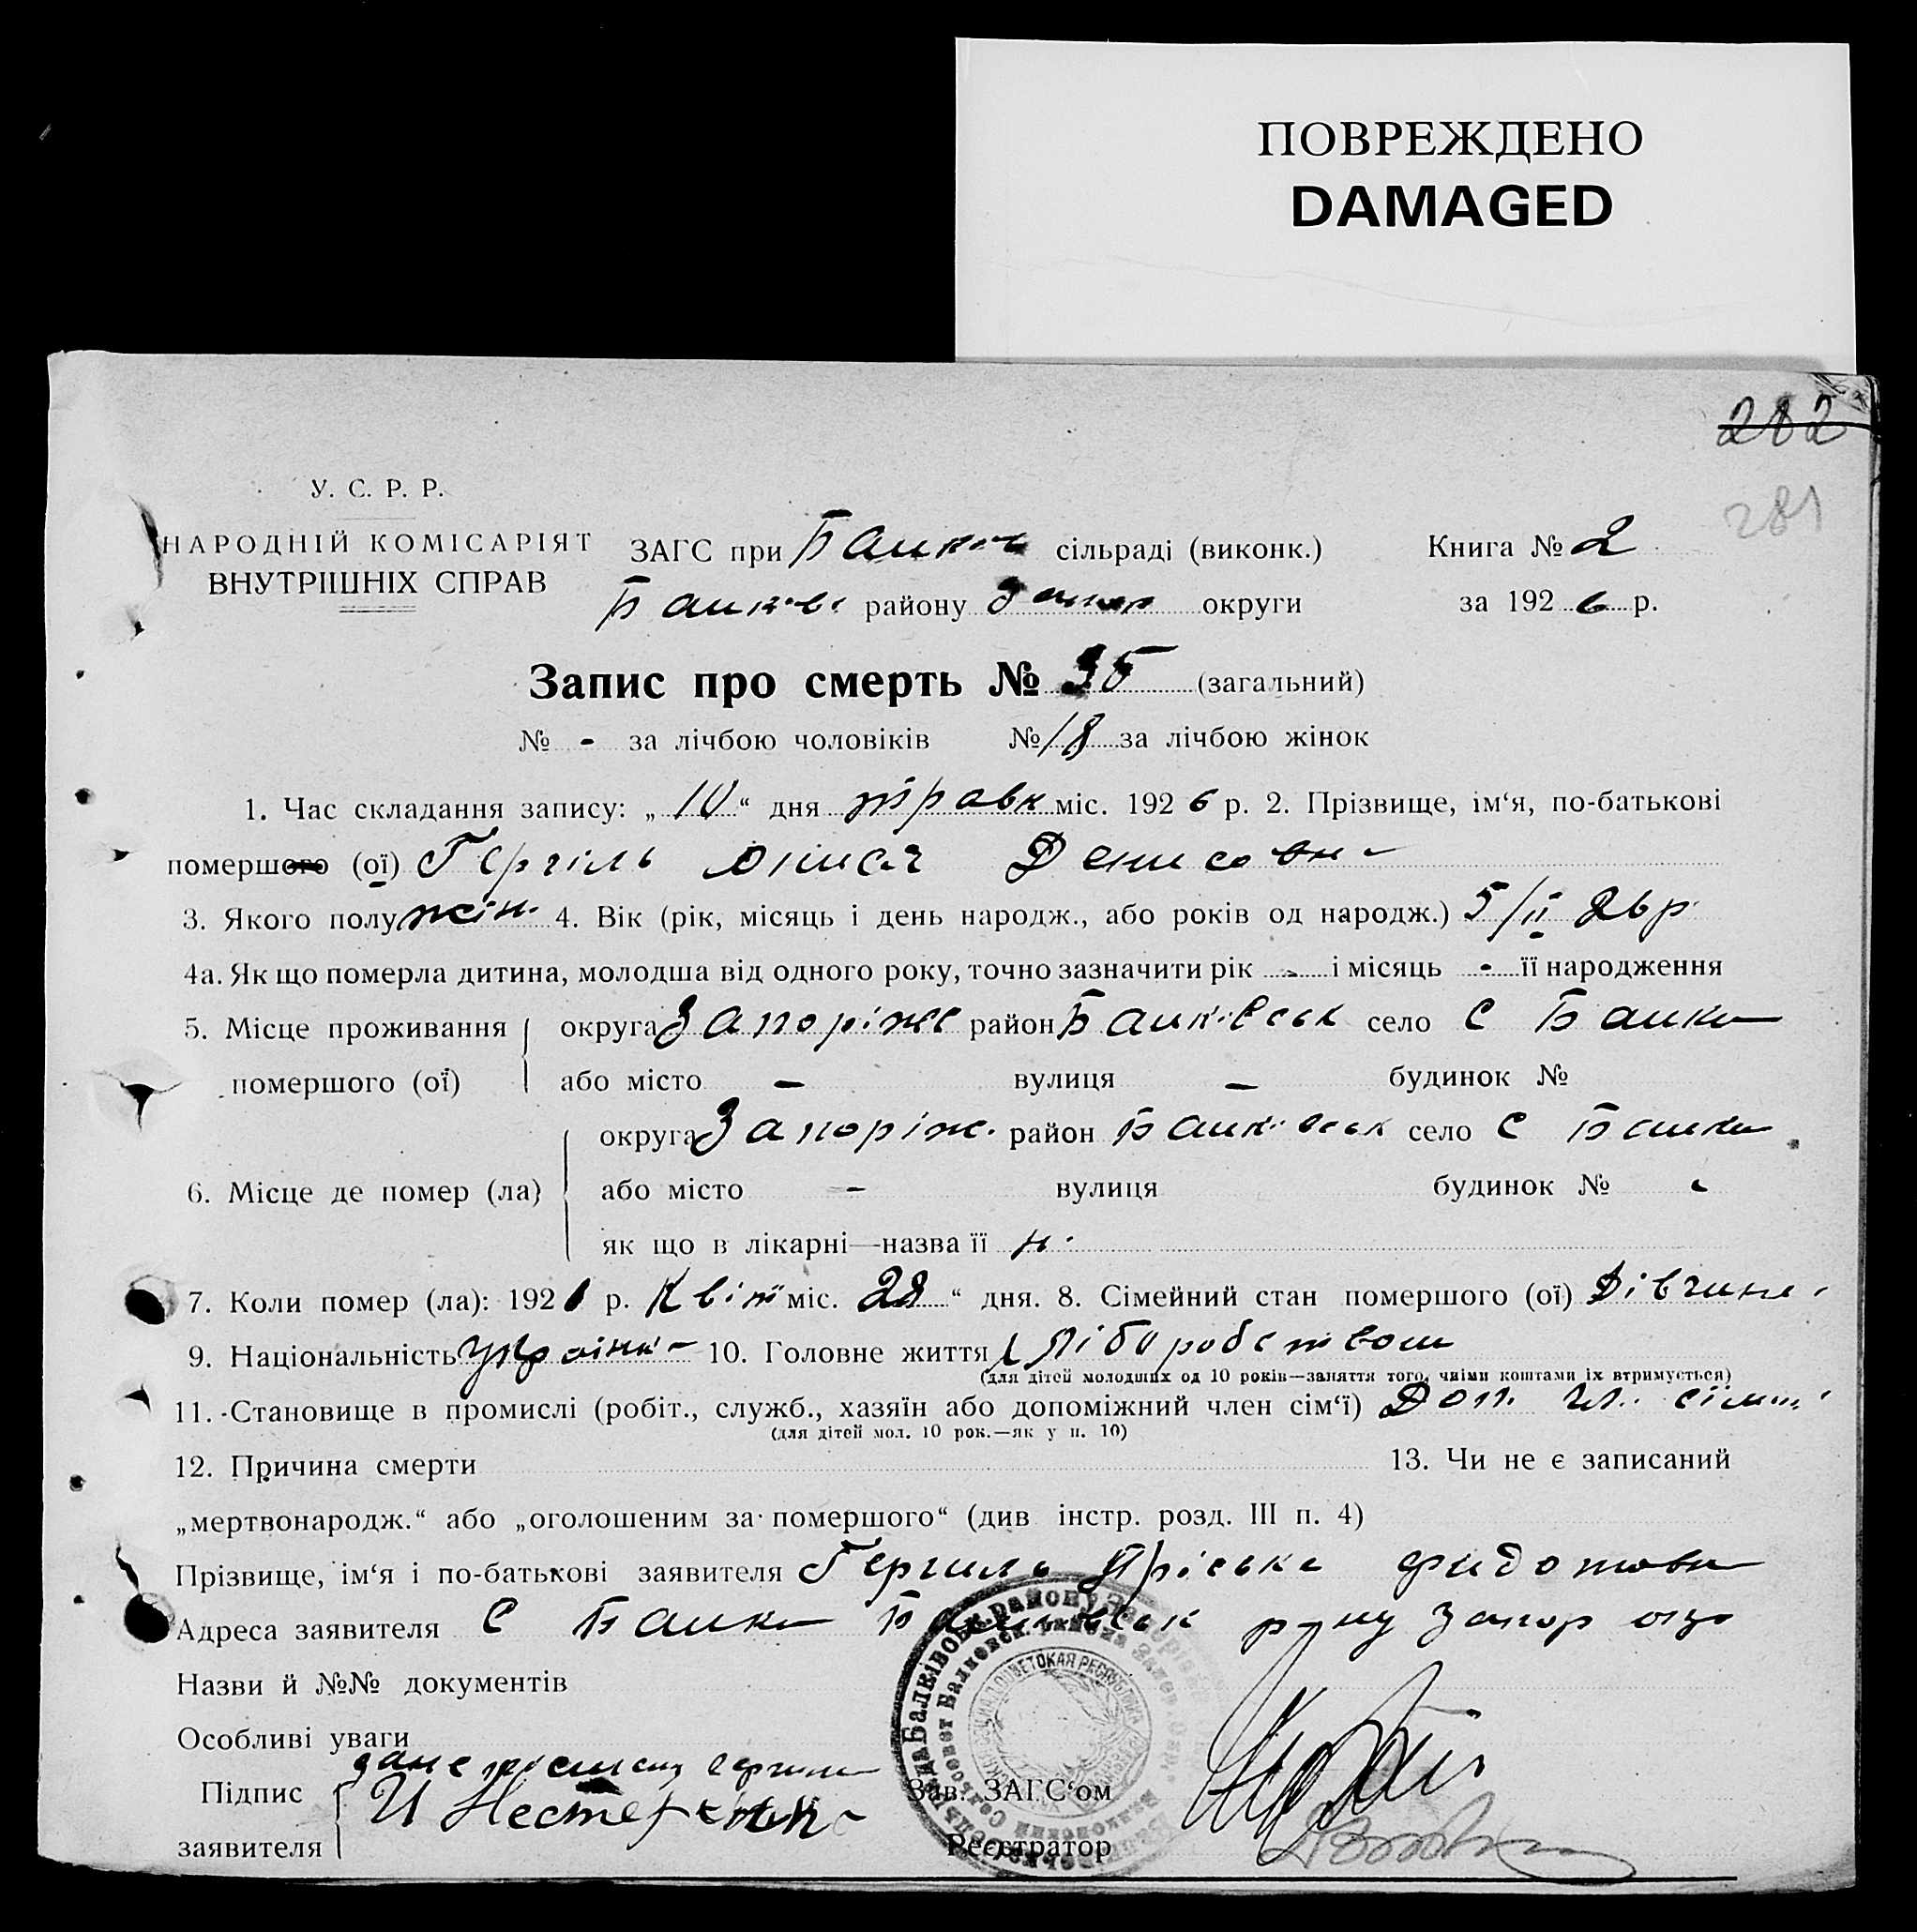 ПОВРЕЖДЕНО
DAMAGED
282
281
У. С. Р. Р.
НАРОДНІЙ КОМІСАРІЯТ
ВНУТРІШНІХ СПРАВ
ЗАГС при сільраді (виконк.) Книга № 2
району Запор округи за 1926 р.
Запис про смерть № 35 (загальний)
№ - за лічбою чоловіків № 18 за лічбою жінок
1. Час складання запису: „10“ дня травк міс. 1926 р. 2. Прізвище, ім‘я, по-батькові
помершого (ої) Гергіль Денисовн
3. Якого полу жін. 4. Вік (рік, місяць і день народж., або років од народж.) 5/II 26 р
4а. Як що померла дитина, молодша від одного року, точно зазначити рік - і місяць - її народження
5. Місце проживання округа Запоріже район Балківськ село С Балки
помершого (ої) або місто — вулиця — будинок №
округа Запоріж. район Балківськ село С Балки
6. Місце де помер (ла) або місто - вулиця будинок № -
як що в лікарні—назва її н.
7. Коли помер (ла): 192 р. Квіт міс. 28“ дня. 8. Сімейний стан помершого (ої) Дівчина
9. Національність україн 10. Головне життя хліборобством
(для дітей молодших од 10 років—заняття того, чиїми коштами їх втримується)
11. Становище в промислі (робіт., служб., хазяїн або допоміжний член сім‘ї) Доп. чл. сімї
(для дітей мол. 10 рок.—як у п. 10)
12. Причина смерти 13. Чи не є записаний
„мертвонародж.“ або „оголошеним за помершого“ (див інстр. розд. III п. 4)
Прізвище, ім‘я і по-батькові заявителя Гергиль Пріська Фидотовн
Адреса заявителя С Балки Балківськ р-ну Запор окр
Назви й №№ документів
Особливі уваги
Підпис
И Нестер
заявителя
Зав. ЗАГС‘ом
Реєстратор